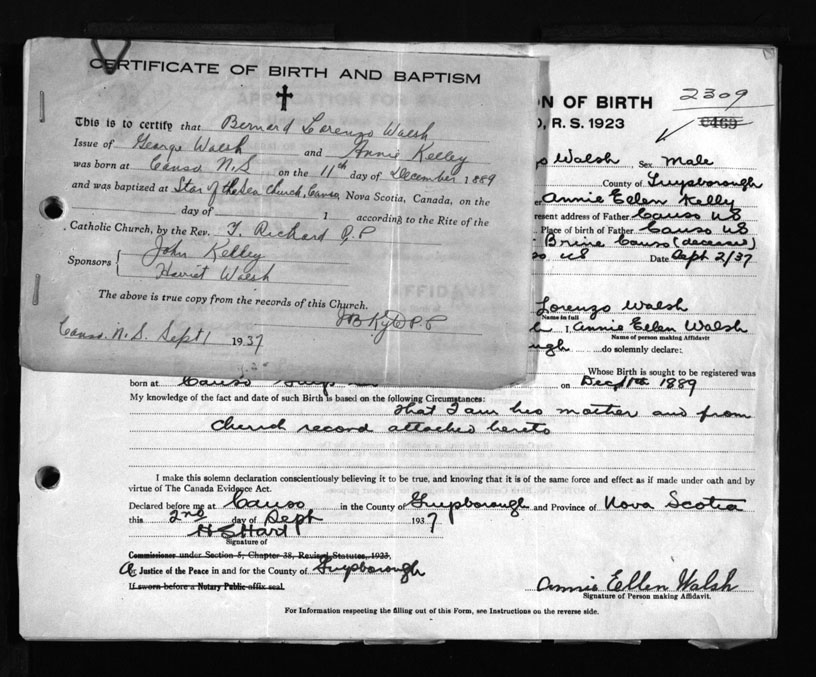 CERTIFICATE OF BIRTH AND BAPTISM
This is to certify that Bernard Lorenzo Walsh
Issue of George Walsh and Annie Kelley
was born at Canso N.S on the 11th day of December 1889
and was baptized at Star of the Sea Church, Canso, Nova Scotia, Canada, on the
day of 1 according to the Rite of the
Catholic Church, by the Rev. T. Richard P.P
Sponsors { John Kelley
Harriet Walsh
The above is true copy from the records of this Church.
P.P
Canso. N.S. Sept 1 1937
ON OF BIRTH 2309
, R. S. 1923
Walsh Sex Male
County of Guysborough
Annie Ellen Kelly
resent address of Father Canso NS
Place of birth of Father Canso NS
Brine Canso (deceased)
NS Date Sept 2/37
AFFIDAVIT
Lorenzo Walsh
Name in full
I, Annie Ellen Walsh
Name of person making Affidavit
ugh do solemnly declare:
Whose Birth is sought to be registered was
born at Canso Guys on Dec 11th 1889
My knowledge of the fact and date of such Birth is based on the following Circumstances:
That I am his mother and from
Church record attached hereto
I make this solemn declaration conscientiously believing it to be true, and knowing that it is of the same force and effect as if made under oath and by
virtue of The Canada Evidence Act.
Declared before me at Canso in the County of Guysborough and Province of Nova Scotia
this 2nd day of Sept 1937
H S Hart
Signature of
Commissioner under Section 5, Chapter 38, Revised Statutes, 1923,
A Justice of the Peace in and for the County of Guysborough
If sworn before a Notary Public affix seal.
Annie Ellen Walsh
Signature of Person making Affidavit.
For Information respecting the filling out of this Form, see Instructions on the reverse side.